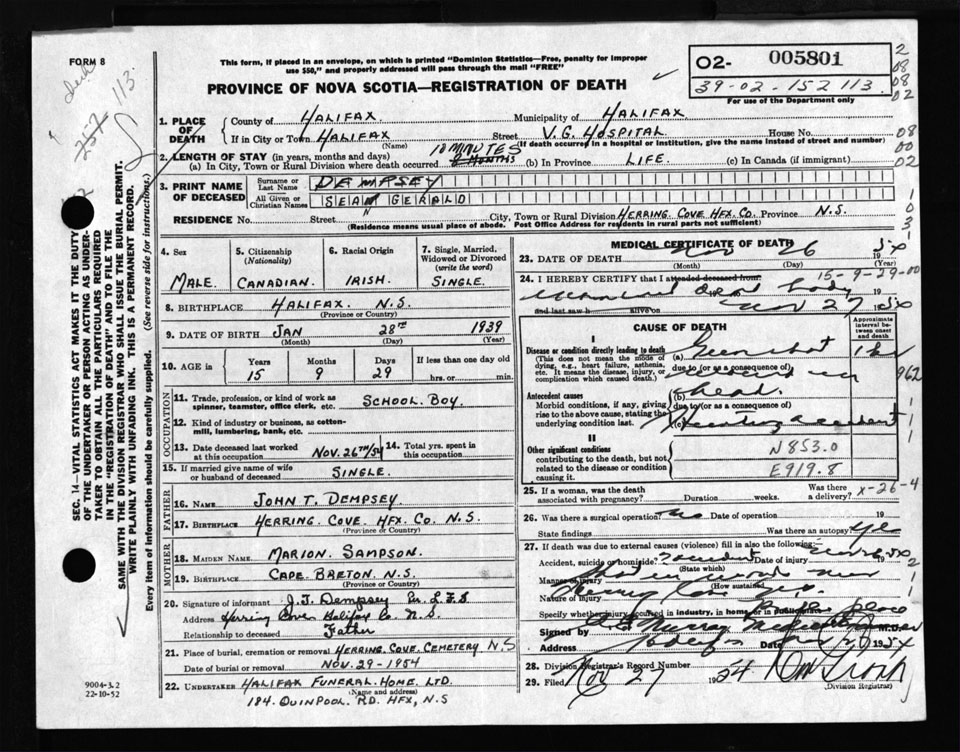 FORM 8
This form, if placed in an envelope, on which is printed "Dominion Statistics—Free, penalty for improper
use $50," and properly addressed will pass through the mail "FREE"
02- 005801
39-02-152 113.
For use of the Department only
2 08 08 02
113.
257
PROVINCE OF NOVA SCOTIA—REGISTRATION OF DEATH
1. PLACE OF DEATH
County of HALIFAX. Municipality of HALIFAX
If in City or Town HALIFAX (Name) Street V.G. HOSPITAL House No.
(If death occurred in a hospital or institution, give the name instead of street and number)
08 00 02
2. LENGTH OF STAY (in years, months and days)
(a) In City, Town or Rural Division where death occurred 10 MINUTES (b) In Province LIFE. (c) In Canada (if immigrant)
3. PRINT NAME OF DECEASED
Surname or Last Name DEMPSEY
All Given or Christian Names SEAN GERALD
RESIDENCE No. Street City, Town or Rural Division HERRING COVE HFX Co. Province N.S.
(Residence means usual place of abode. Post Office Address for residents in rural parts not sufficient)
4. Sex MALE.
5. Citizenship (Nationality) CANADIAN.
6. Racial Origin IRISH.
7. Single, Married, Widowed or Divorced (write the word) SINGLE.
8. BIRTHPLACE HALIFAX. N.S.
(Province or Country)
9. DATE OF BIRTH JAN 28TH 1939
(Month) (Day) (Year)
10. AGE in Years 15 Months 9 Days 29 If less than one day old hrs. or min.
OCCUPATION
11. Trade, profession, or kind of work as spinner, teamster, office clerk, etc. SCHOOL BOY.
12. Kind of industry or business, as cotton-mill, lumbering, bank, etc.
13. Date deceased last worked at this occupation NOV. 26TH/54
14. Total yrs. spent in this occupation
15. If married give name of wife or husband of deceased SINGLE.
FATHER
16. NAME JOHN T. DEMPSEY
17. BIRTHPLACE HERRING. COVE HFX Co. N.S.
(Province or Country)
MOTHER
18. MAIDEN NAME: MARION. SAMPSON.
19. BIRTHPLACE CAPE BRETON. N.S.
(Province or Country)
20. Signature of informant J.T. Dempsey
Address Herring Cove Halifax Co. N.S.
Relationship to deceased Father
21. Place of burial, cremation or removal HERRING. COVE. CEMETERY N.S
Date of burial or removal NOV. 29-1954
22. UNDERTAKER HALIFAX FUNERAL. HOME. LTD.
(Name and address)
184. QUINPOOL. RD. HFX, N.S
MEDICAL CERTIFICATE OF DEATH
23. DATE OF DEATH Nov 26 1954
(Month) (Day) (Year)
15-9-29-00
24. I HEREBY CERTIFY that I attended deceased from:
body
and last saw h alive on Nov 27 1954
CAUSE OF DEATH
Approximate interval between onset and death
I
Disease or condition directly leading to death
(This does not mean the mode of dying, e.g., heart failure, asthma, etc. It means the disease, injury, or complication which caused death.)
(a) Gun shot
due to (or as a consequence of)
962
Antecedent causes
Morbid conditions, if any, giving rise to the above cause, stating the underlying condition last.
(b) head.
due to (or as a consequence of)
(c) Hunting accident
II
Other significant conditions
contributing to the death, but not related to the disease or condition causing it.
N853.0
E919.8
25. If a woman, was the death associated with pregnancy? Duration weeks. Was there a delivery?
X-26-4
26. Was there a surgical operation? no Date of operation 19
State findings Was there an autopsy? yes
27. If death was due to external causes (violence) fill in also the following:
Accident, suicide or homicide? accident Date of injury Nov 26 1954
(State which)
Manner of injury shot in woods near
(How sustained)
Nature of injury Herring Cove
Specify whether injury occurred in industry, in home or in public place
Signed by Murray M.D.
27 1954
28. Division Registrar's Record Number
29. Filed Nov 27 1954
(Division Registrar)
SEC. 14—VITAL STATISTICS ACT MAKES IT THE DUTY
OF THE UNDERTAKER OR PERSON ACTING AS UNDER-
TAKER TO OBTAIN ALL THE PARTICULARS REQUIRED
IN THE "REGISTRATION OF DEATH" AND TO FILE THE
SAME WITH THE DIVISION REGISTRAR WHO SHALL ISSUE THE BURIAL PERMIT.
WRITE PLAINLY WITH UNFADING INK. THIS IS A PERMANENT RECORD.
Every item of information should be carefully supplied. (See reverse side for instructions.)
9004-3.2
22-10-52